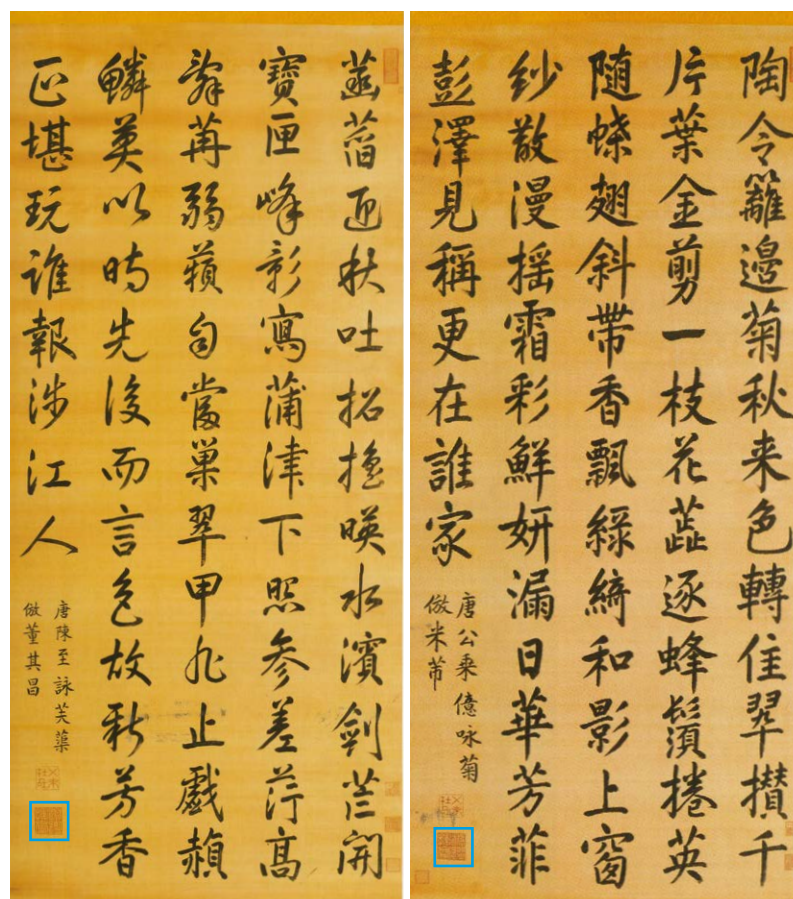 陶令籬邉菊秋来色轉佳翠攢千
片葉金剪一枝花蕋逐蜂鬚捲英
随蝶翅斜帶香飄緑綺和影上窗
紗散漫揺霜彩鮮妍漏日華芳菲
彭澤見稱更在誰家
唐公乘億咏菊
倣米芾
菡萏迎秋吐招搖暎水濱劍芒開
寶匣峰影寫蒲津下照参差荇高
辭苒弱蘋自當巢翠甲非止戲赬
鱗莫以時先後而言色故新芳香
正堪玩誰報涉江人
唐陳至詠芙蕖
倣董其昌